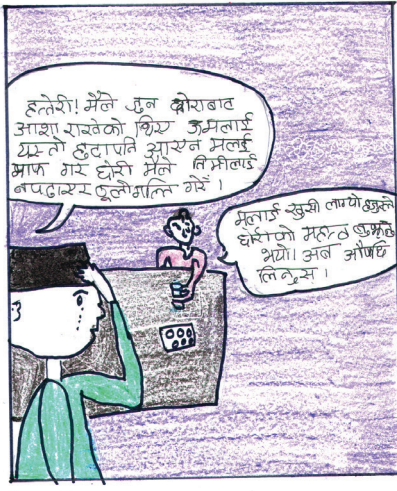 हत्तेरी! मैले जुन छोराबाट
आशा राखेको थिए उसलाई
यस्तो हुदापनि आएन मलाई
माफ गर छोरी मैले तिमीलाई
नपढाएर ठूलोगल्ति गरें ।
मलाई खुसी लाग्यो हजुरले
छोरीको महत्व बुझ्नु
भयो। अब औषधि
लिनुस ।